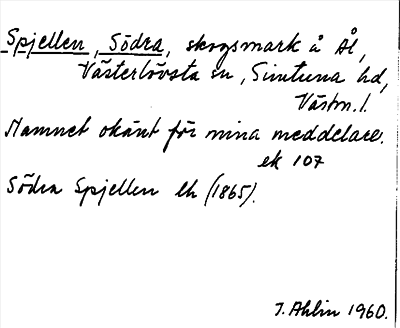 Spjellen, Södra, skogsmark å Ål,
Västerlövsta sn, Simtuna hd,
Västm. l.
Namnet okänt för mina meddelare.
ek 107
Södra Spjellen lk (1865).
T. Ahlin 1960.